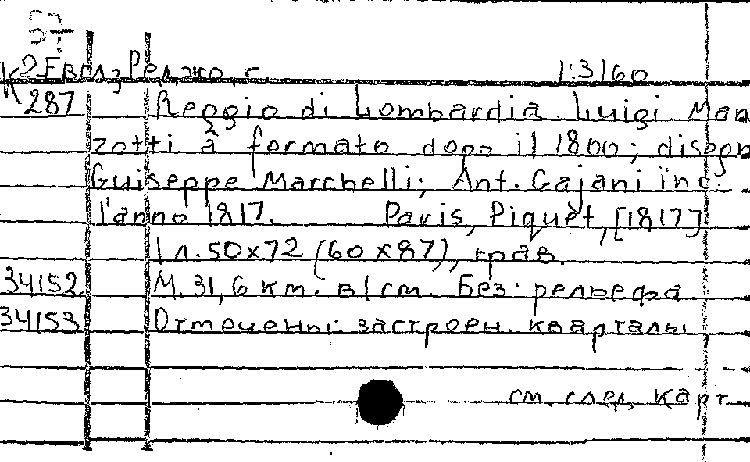 К 2 Евг5, Реджо, г. 1:3160
287 Reggio di Lombardia Luigi Man
zotti à formato dopo il 1800; disegn
Guiseppe Marchelli; Ant. Cajani inc.
l'anno 1817. Paris, Piquet, [1817]
1 л. 50x72 (60x87), грав.
34152 М. 31,6 км. в 1 см. Без рельефа
34153 Отмечены застроен. кварталы
см. след. карт